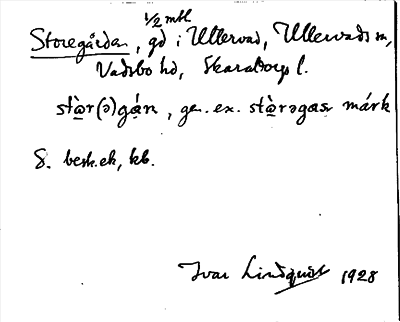 1/2 mtl
Storegården, gd i Ullervad, Ullervads sn,
Vadsbo hd, Skaraborgs l.
stὼr(ə)gán, ge. ex. stὼrəgas márk
8. besk. ek, kb.
Ivar Lindquist 1928